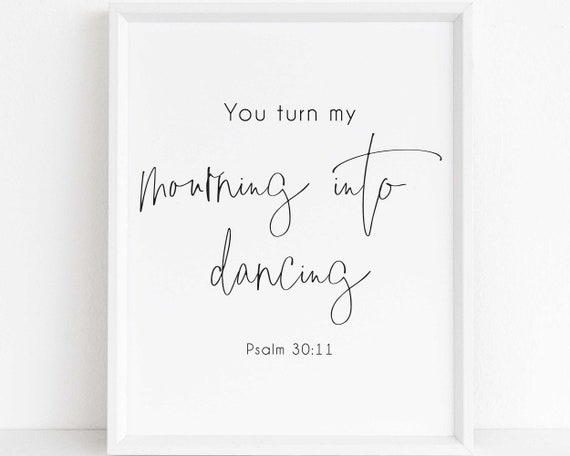 You turn my
mourning into
dancing
Psalm 30:11